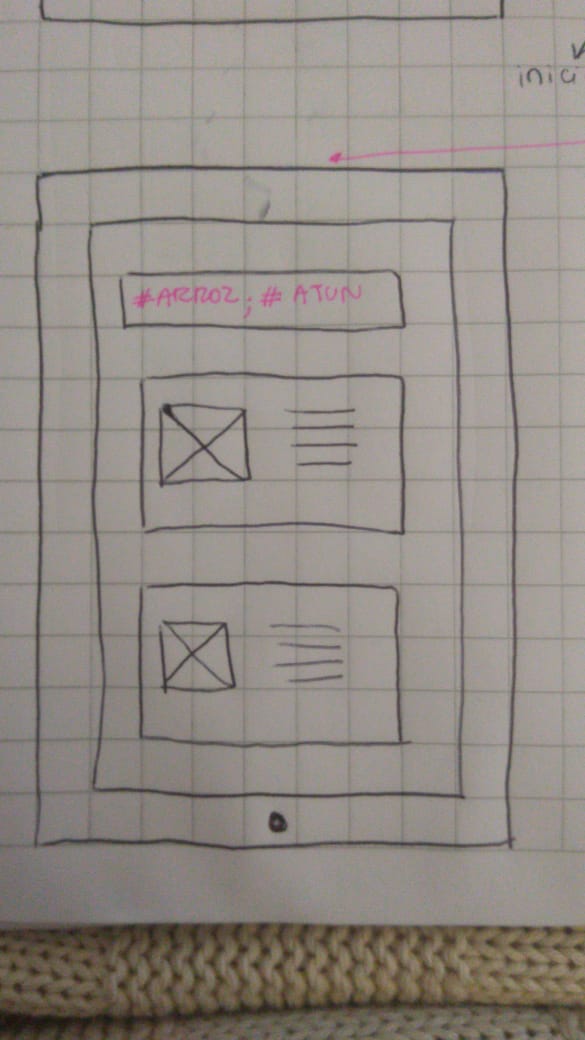 inici
#ARROZ; # ATUN